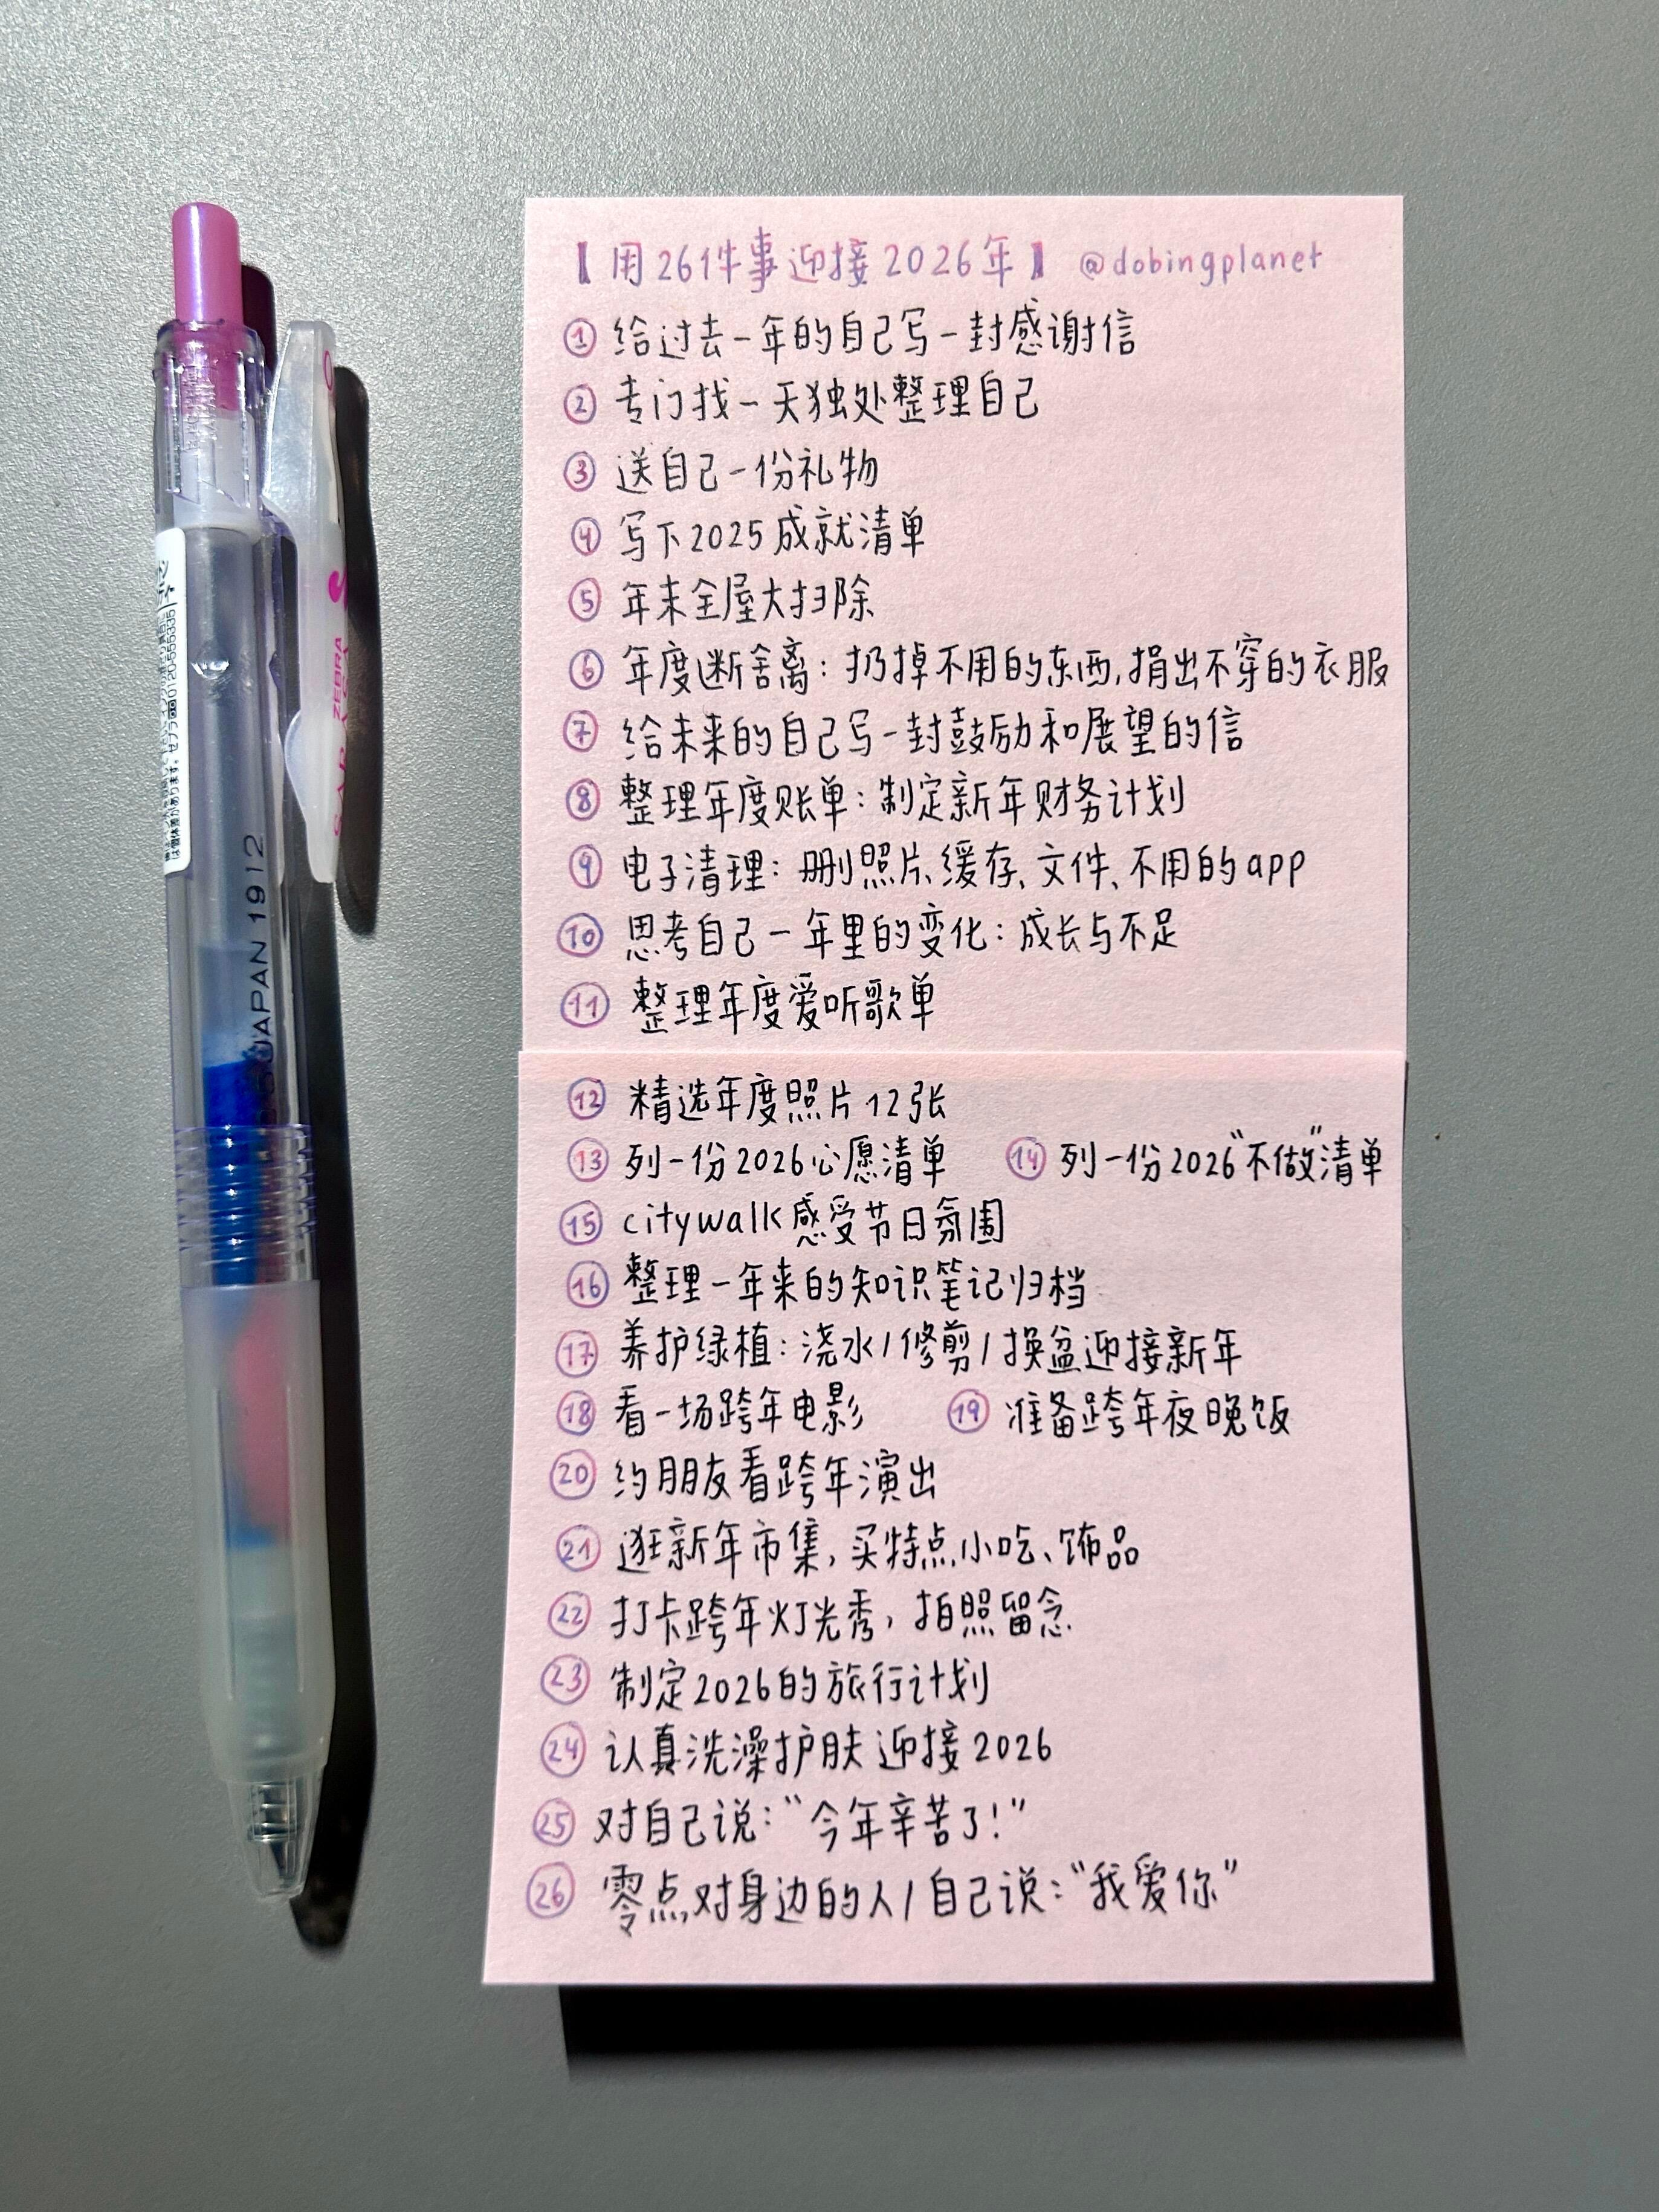 【用26件事迎接2026年】 @dobingplanet
① 给过去一年的自己写一封感谢信
② 专门找一天独处整理自己
③ 送自己一份礼物
④ 写下2025成就清单
⑤ 年末全屋大扫除
⑥ 年度断舍离：扔掉不用的东西，捐出不穿的衣服
⑦ 给未来的自己写一封鼓励和展望的信
⑧ 整理年度账单：制定新年财务计划
⑨ 电子清理：删照片、缓存、文件、不用的app
⑩ 思考自己一年里的变化：成长与不足
⑪ 整理年度爱听歌单
⑫ 精选年度照片12张
⑬ 列一份2026心愿清单 ⑭ 列一份2026“不做”清单
⑮ citywalk感受节日氛围
⑯ 整理一年来的知识笔记归档
⑰ 养护绿植：浇水/修剪/换盆迎接新年
⑱ 看一场跨年电影 ⑲ 准备跨年夜晚饭
⑳ 约朋友看跨年演出
㉑ 逛新年市集，买特点小吃、饰品
㉒ 打卡跨年灯光秀，拍照留念
㉓ 制定2026的旅行计划
㉔ 认真洗澡护肤迎接2026
㉕ 对自己说：“今年辛苦了！”
㉖ 零点对身边的人/自己说：“我爱你”
ZEBRA
JAPAN 1912